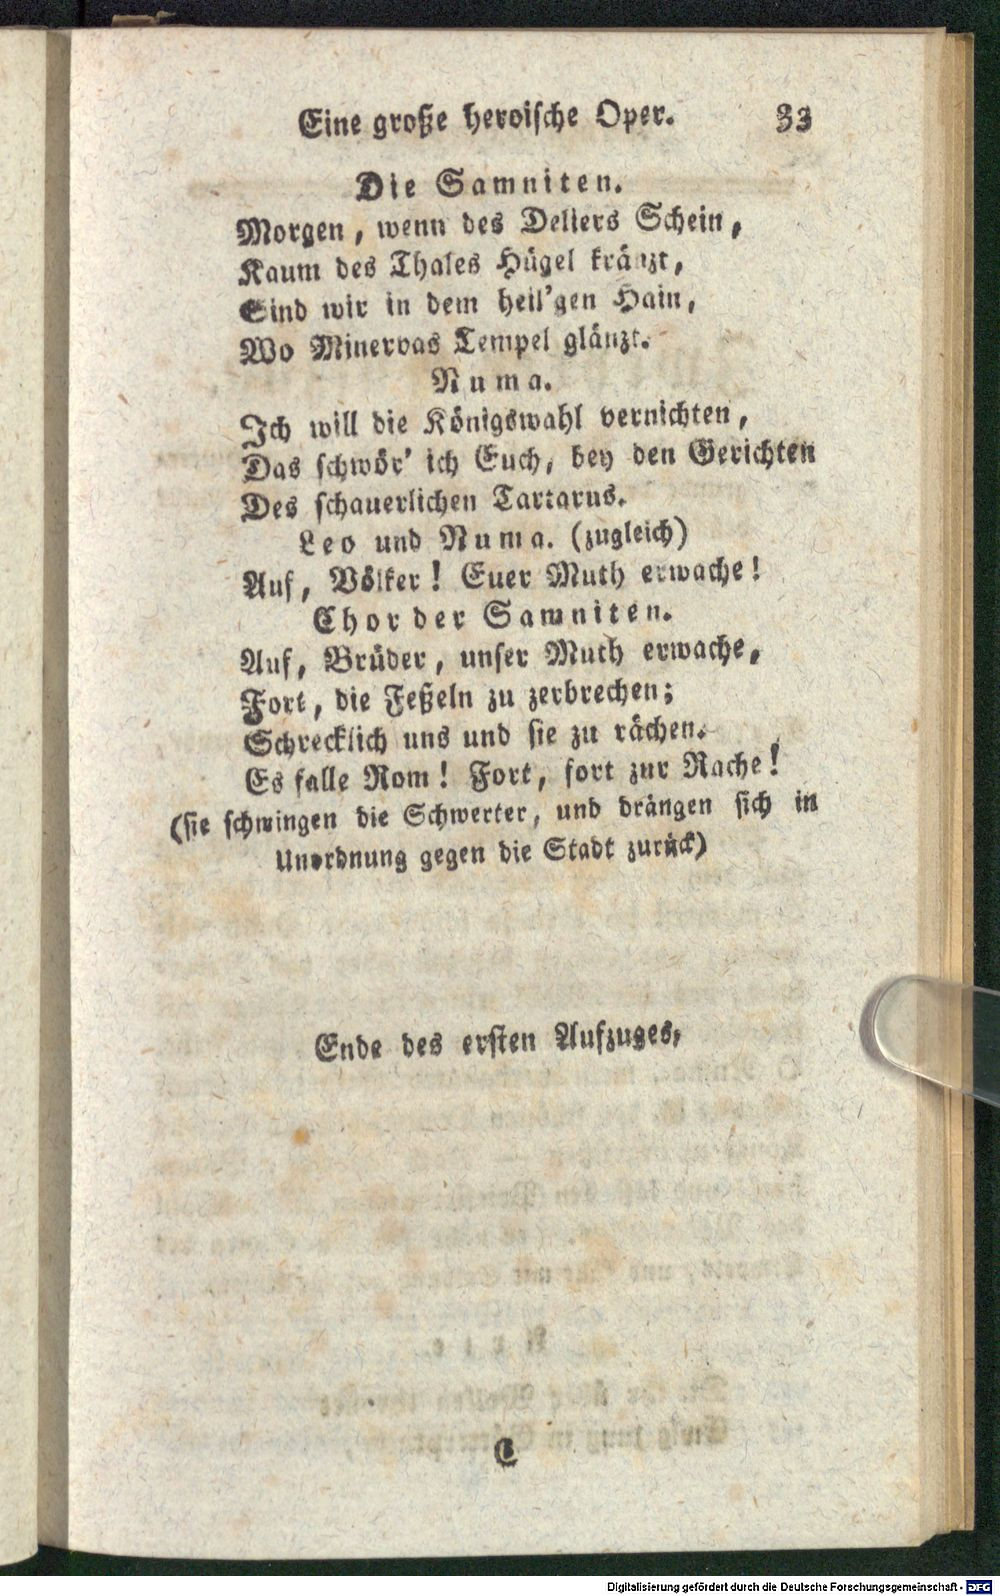 Eine große heroische Oper. 33
Die Samniten.
Morgen, wenn des Deliers Schein,
Kaum des Thales Hügel kränzt,
Sind wir in dem heil'gen Hain,
Wo Minervas Tempel glänzt.
Numa.
Ich will die Königswahl vernichten,
Das schwör' ich Euch, bey den Gerichten
Des schauerlichen Tartarus.
Leo und Numa. (zugleich)
Auf, Völker! Euer Muth erwache!
Chor der Samniten.
Auf, Brüder, unser Muth erwache,
Fort, die Feßeln zu zerbrechen;
Schrecklich uns und sie zu rächen.
Es falle Rom! Fort, fort zur Rache!
(sie schwingen die Schwerter, und drängen sich in
Unordnung gegen die Stadt zurück)
Ende des ersten Aufzuges,
C
Digitalisierung gefördert durch die Deutsche Forschungsgemeinschaft - DFG